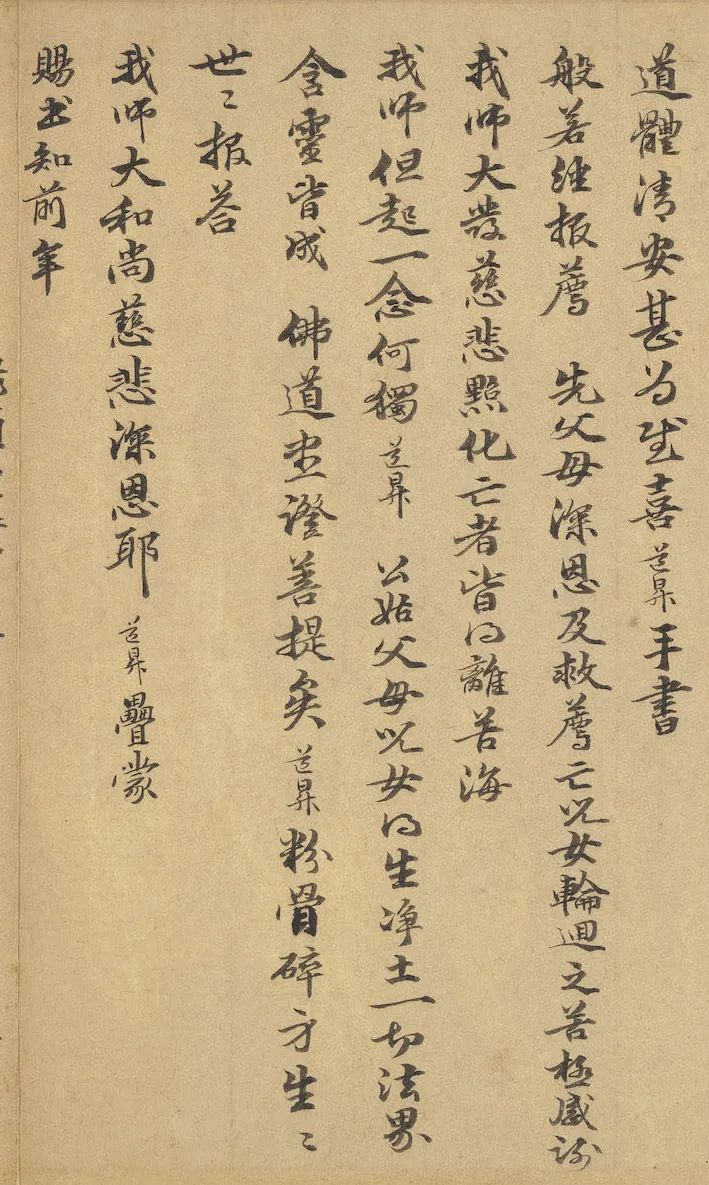 道體清安甚为慰喜道昇手書
般若經报薦 先父母深恩及救薦亡兒女輪迴之苦極感謝
我师大發慈悲點化亡者皆得離苦海
我师但起一念何獨道昇 公姑父母兒女得生净土一切法界
含靈皆成 佛道盡證菩提矣道昇粉骨碎身生々
世々报荅
我师大和尚慈悲深恩耶道昇疊蒙
賜书知前年